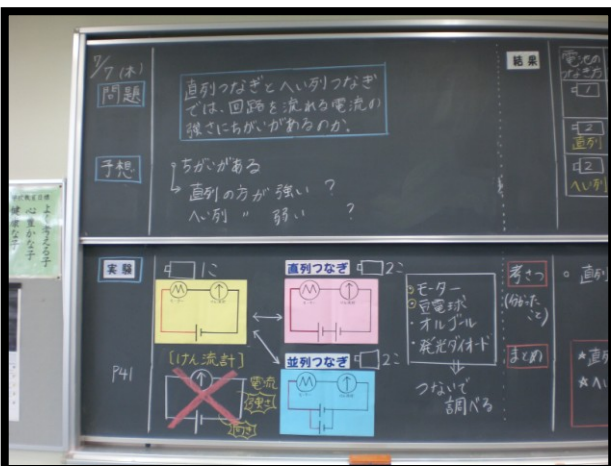 7/7(木)
問題
直列つなぎとへい列つなぎ
では、回路を流れる電流の
強さにちがいがあるのか。
予想
ちがいがある
直列の方が 強い ?
へい列 〃 弱い ?
結果
電池の
つなぎ方
1
2
直列
2
へい列
よく考える子
心豊かな子
健康な子
実験
P41
1こ
直列つなぎ 2こ
並列つなぎ 2こ
[けん流計]
電流
強さ
向き
モーター
豆電球
・オルゴール
・発光ダイオード
つないで
調べる
考さつ
(分かった
こと)
まとめ
直列
★直
★へ